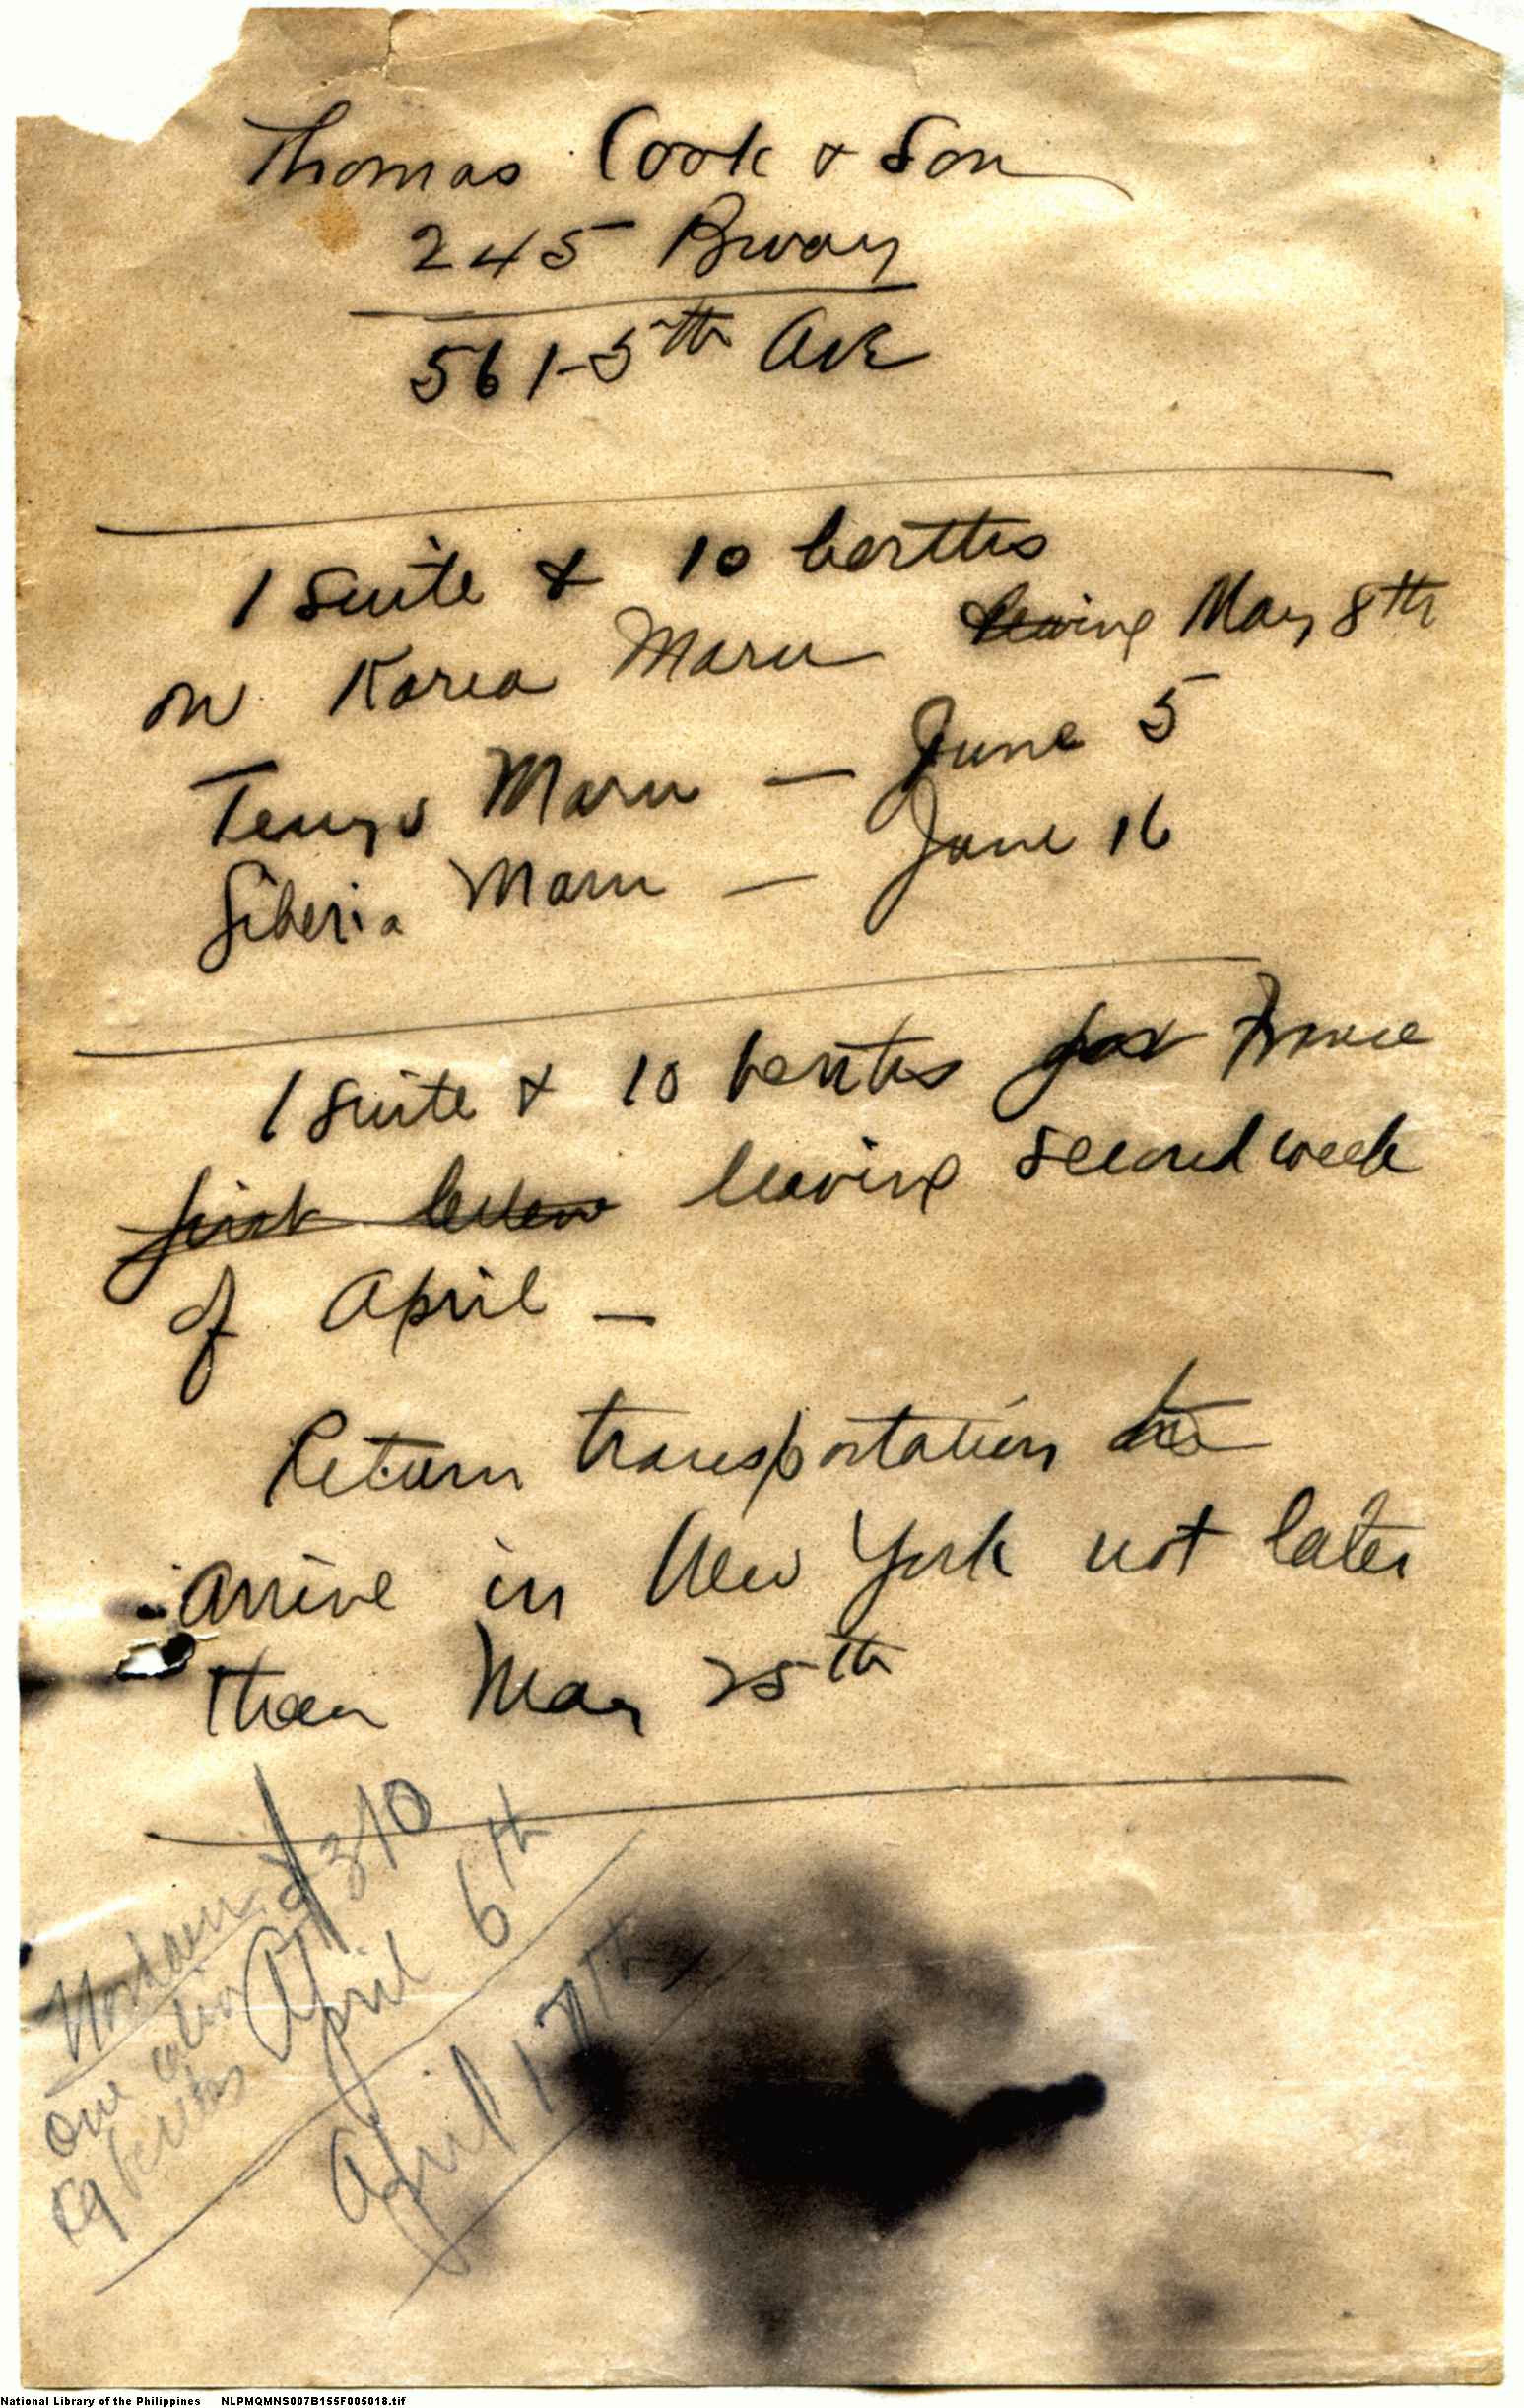 Thomas Cook & Son
245 Bway
561-5th Ave
1 suite & 10 berths
on Korea Maru leaving May 8th
Tenyo Maru — June 5
Siberia Maru — June 16
1 suite & 10 berths for France
first leaving second week
of April —
Return transportation to
arrive in New York not later
than May 25th
$310
April 6th
One cabin
berths
April 17th
National Library of the Philippines NLPMQMNS007B155F005018.tif